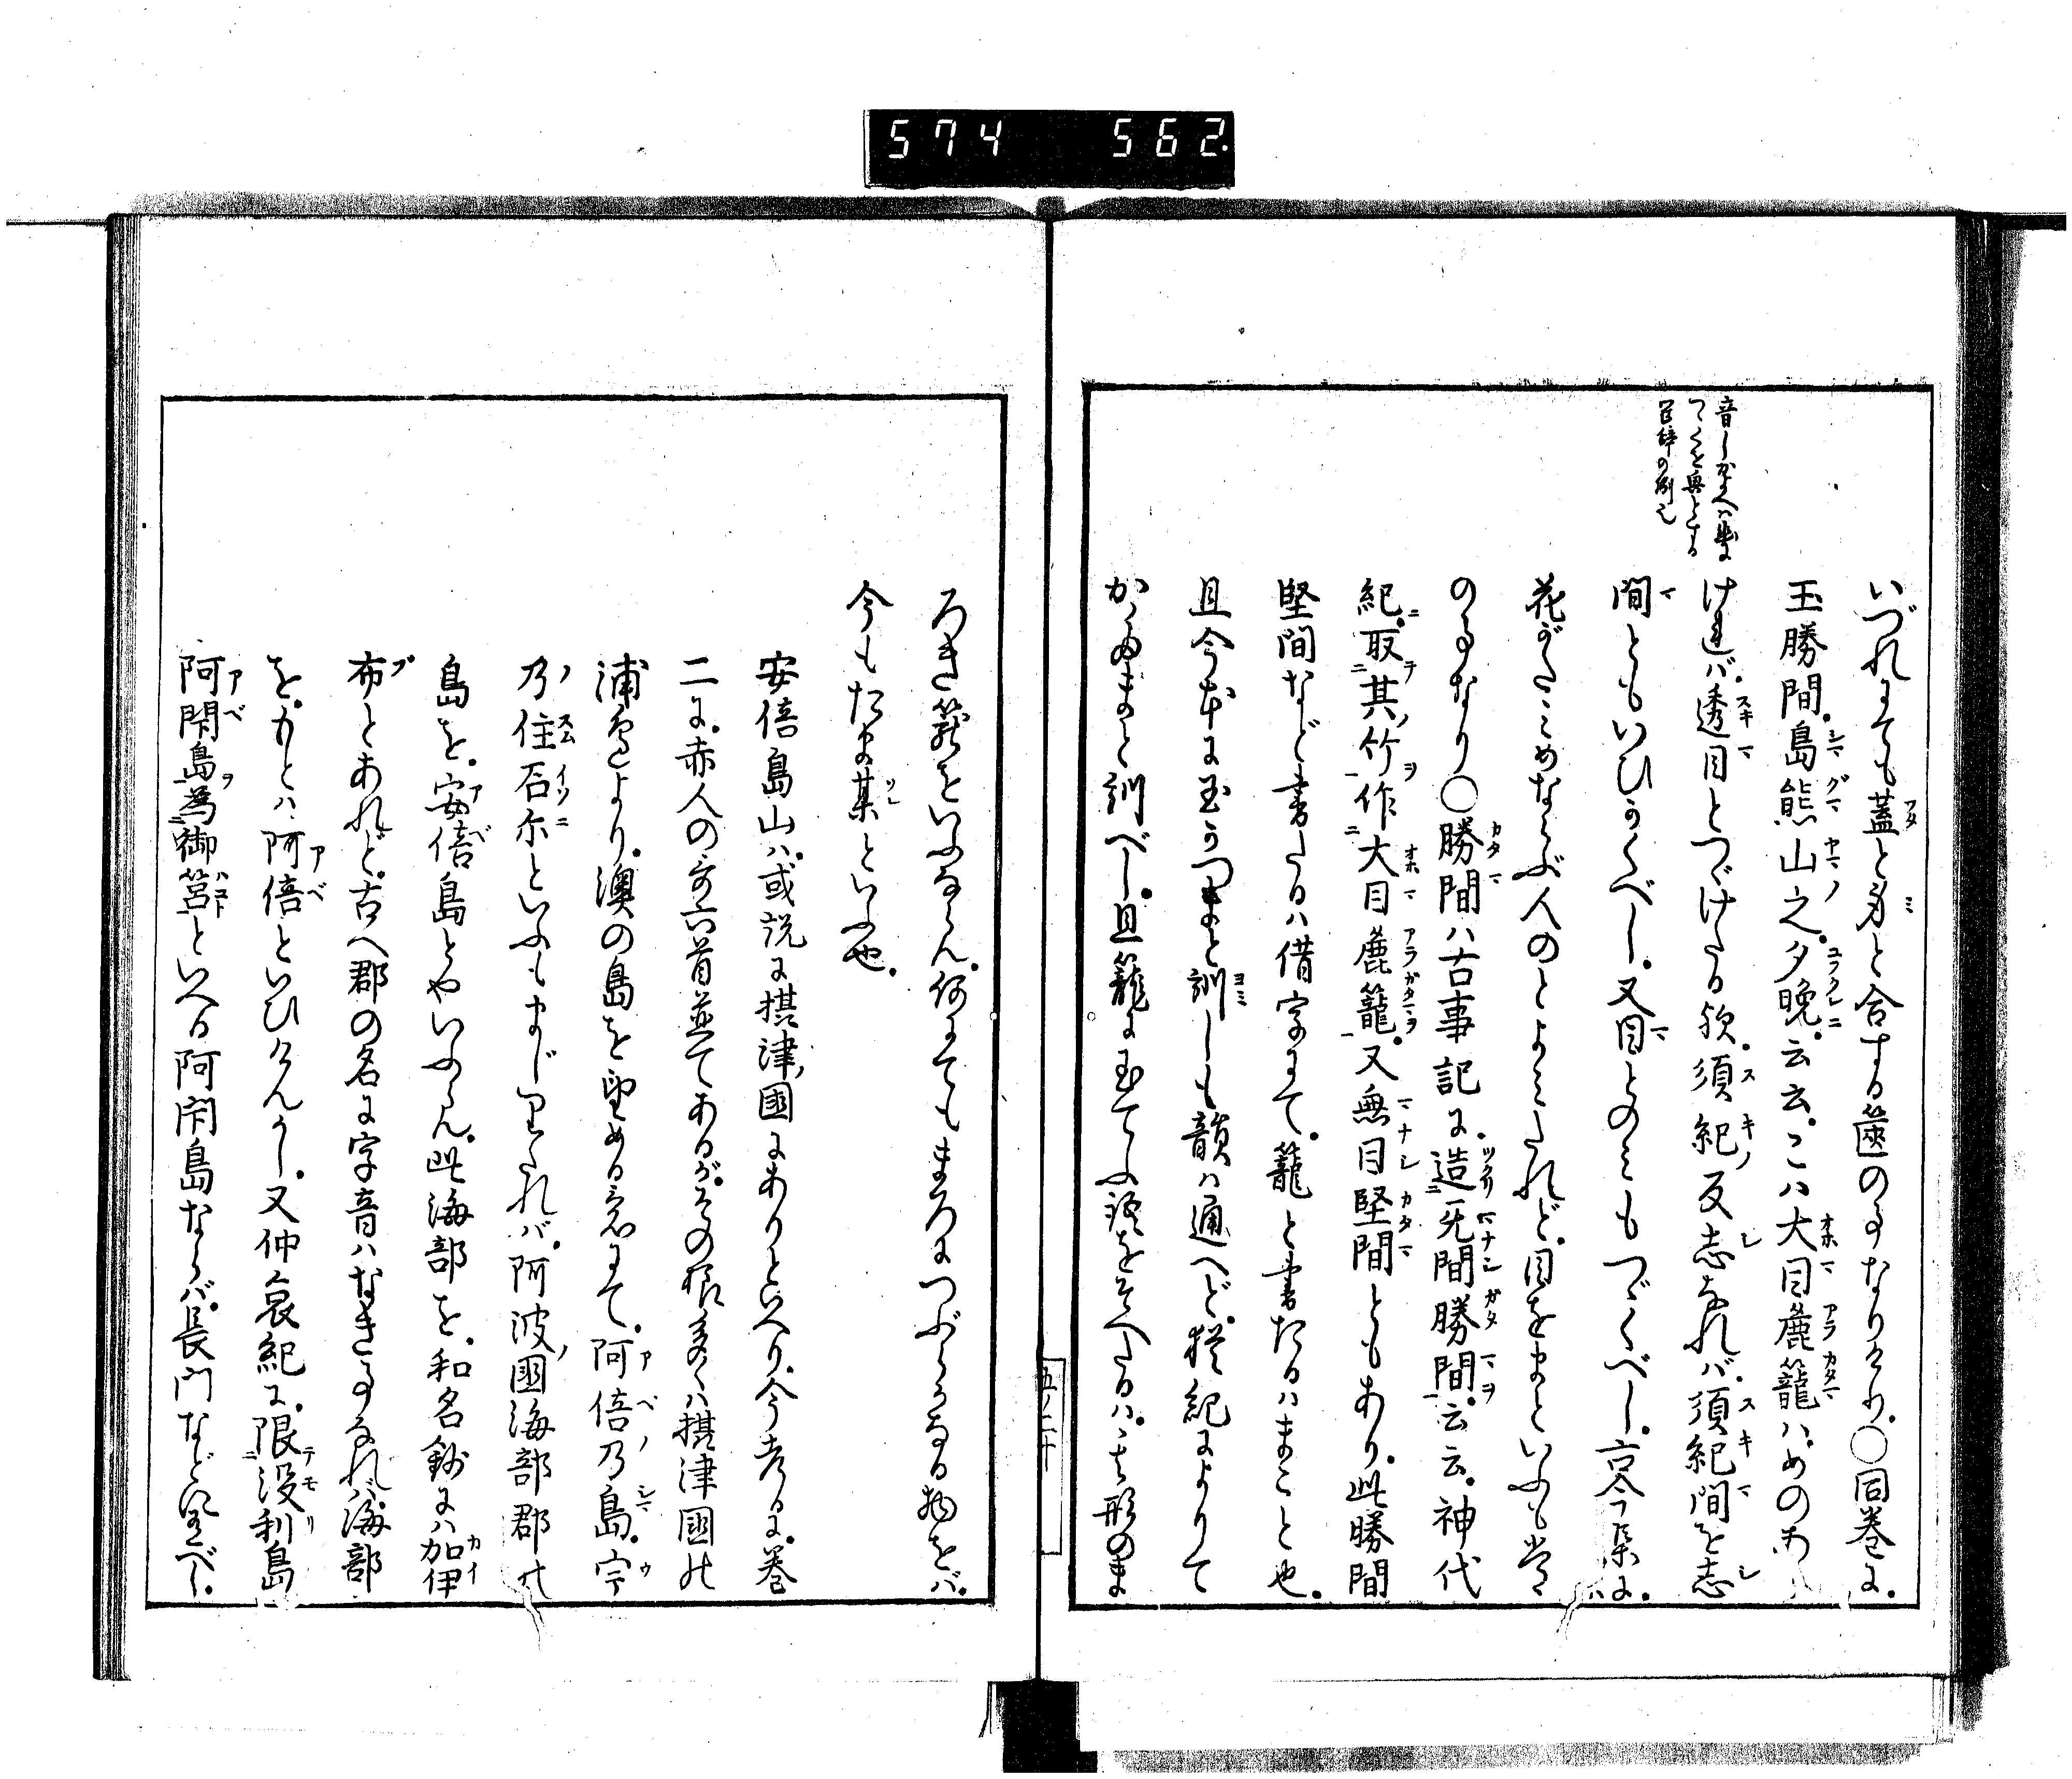 574 562
音しかよへは專に
つくを無とする
冠辞の例也
いづれにても蓋と身と合する筺の事なりけり。〇同巻に。
玉勝間。島熊山之。夕晩。云云。こハ大目麁籠ハ。めのあ
け連バ。透目とつゞけたる歟。須紀反志なれバ。須紀間を志
間ともいひつべし。又目とのみもつゞくべし。古今集に。
花がたみめならぶ人のとよみたれど。目をまといふも常
の事なり〇勝間ハ古事記に。造无間勝間。云云。神代
紀。取其竹作大目麁籠。又無目堅間ともあり。此勝間
堅間など書たるハ借字にて。籠と書たるハまこと也。
且今本に玉かつまと訓しも韻ハ通へど。猶紀によりて
かたまと訓べし。且籠に玉てふ語をそへたるハ。其形のま
ろき籠をいふならん。何にてもまろにつぶらなる物をバ。
今もたま某といふ也。
安倍島山ハ。或説に摂津國にありといへり。今考るに。巻
二に。赤人の哥六首並てあるが。その張多くハ摂津國の
浦邊より。澳の島を望める意にて。阿倍乃島。宇
乃住石尓といふもまじりたれバ。阿波國海部郡の
島を。安倍島とやいふらん。此海部を。和名鈔にハ加伊
布とあれど。古へ郡の名に字音ハなき事なれバ。海部
を。もとハ阿倍といひけんかし。又仲哀紀に。限没利島
阿閇島為御筥といへる阿閇島ならバ。長門などに在べし。
五ノ二十